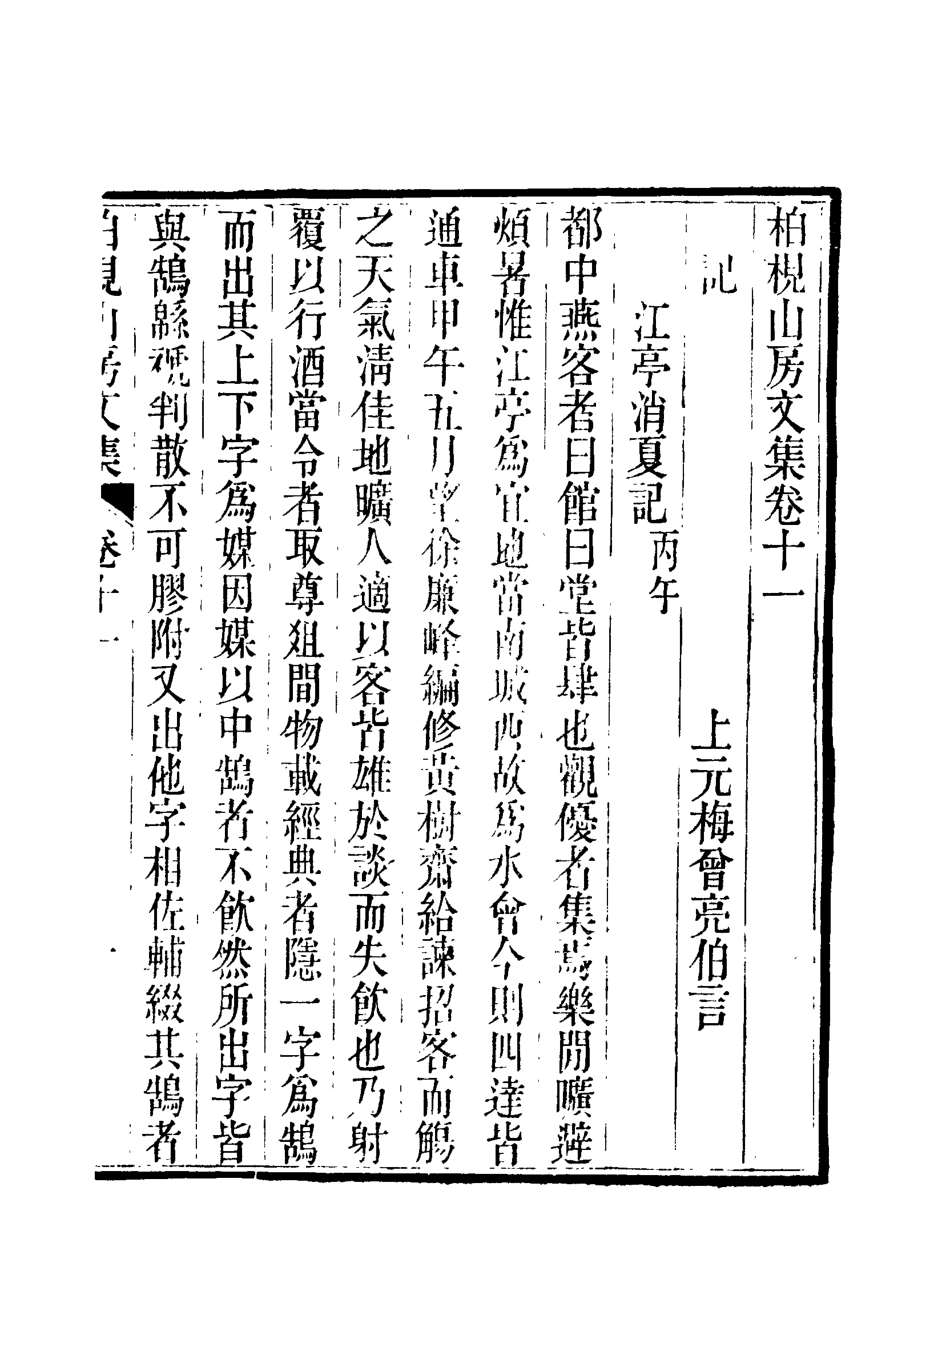 柏梘山房文集卷十一
上元梅曾亮伯言
記
江亭消夏記丙午
都中燕客者曰館曰堂皆肆也觀優者集焉樂閒曠避
煩暑惟江亭爲宜地當南城西故爲水會今則四達皆
通車甲午五月望徐廉峰編修黄樹齋給諫招客而觴
之天氣淸佳地曠人適以客皆雄於談而失飮也乃射
覆以行酒當令者取尊俎間物載經典者隱一字爲鵠
而出其上下字爲媒因媒以中鵠者不飮然所出字皆
與鵠緜褫判散不可膠附又出他字相佐輔綴其鵠者
柏梘山房文集 卷十一 一